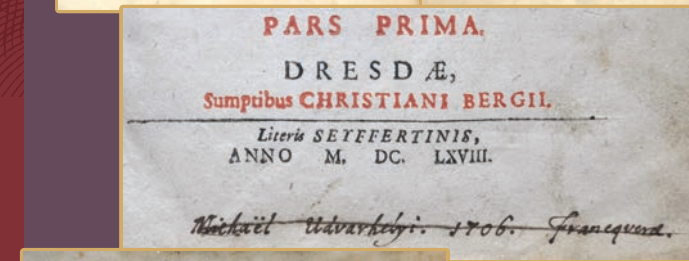 PARS PRIMA.
DRESDÆ,
Sumptibus CHRISTIANI BERGII.
Literis SEYFFERTINIS,
ANNO M. DC. LXVIII.
Michaël Udvarhelyi. 1706. Franequeræ.